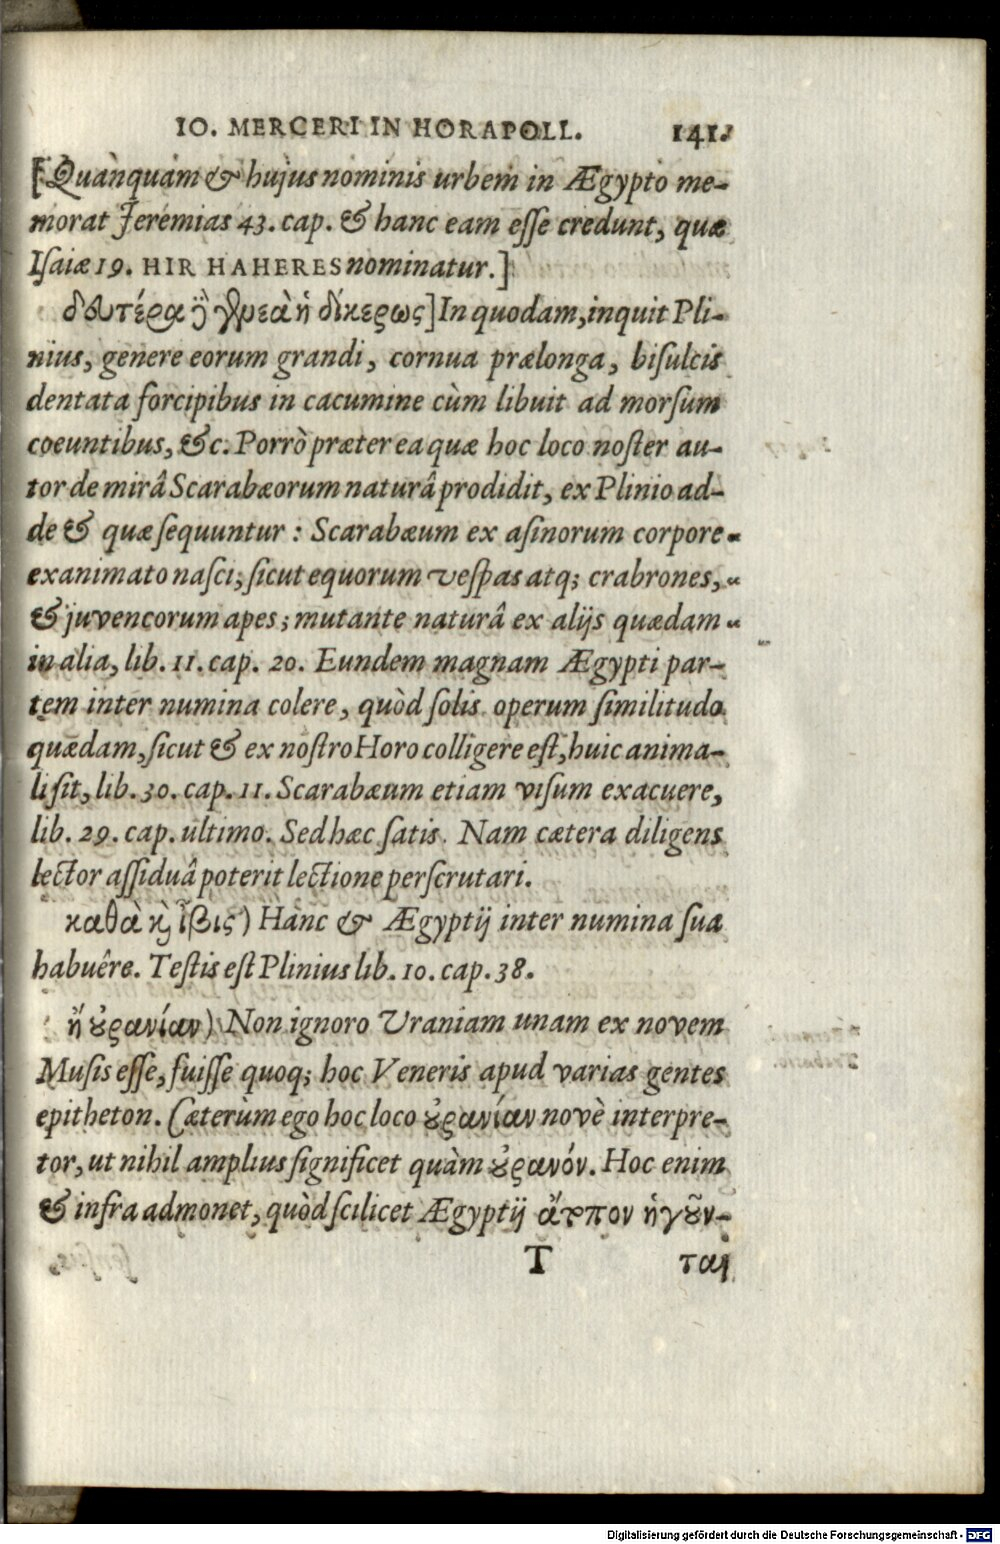 IO. MERCERI IN HORAPOLL. 141.
[Quànquàm & hujus nominis urbem in Ægypto me-
morat Jeremias 43. cap. & hanc eam eſſe credunt, quæ
Iſaiæ 19. HIR HAHERES nominatur.]
δευτέρα ἢ γλυεὰ ἡ δίκερως] In quodam, inquit Pli-
nius, genere eorum grandi, cornua prælonga, biſulcis
dentata forcipibus in cacumine cùm libuit ad morſum
coeuntibus, &c. Porrò præter ea quæ hoc loco noſter au-
tor de mirâ Scarabæorum naturâ prodidit, ex Plinio ad-
de & quæ ſequuntur : Scarabæum ex aſinorum corpore „
exanimato naſci; ſicut equorum veſpas atq; crabrones, „
& juvencorum apes; mutante naturâ ex alijs quædam „
in alia, lib. 11. cap. 20. Eundem magnam Ægypti par-
tem inter numina colere, quòd ſolis operum ſimilitudo
quædam, ſicut & ex noſtro Horo colligere eſt, huic anima-
li ſit, lib. 30. cap. 11. Scarabæum etiam viſum exacuere,
lib. 29. cap. ultimo. Sed hæc ſatis. Nam cætera diligens
lector aſſiduâ poterit lectione perſcrutari.
καθὰ κ̀ ἶβις) Hanc & Ægyptij inter numina ſua
habuêre. Teſtis eſt Plinius lib. 10. cap. 38.
ἢ ȣ̓ρανίαν) Non ignoro Uraniam unam ex novem
Muſis eſſe, fuiſſe quoq; hoc Veneris apud varias gentes
epitheton. Cæterùm ego hoc loco ȣ̓ρανίαν novè interpre-
tor, ut nihil amplius ſignificet quàm ȣ̓ρανόν. Hoc enim
& infra admonet, quòd ſcilicet Ægyptij ἄτοπον ἡγȣ͂ν-
T ται
Digitalisierung gefördert durch die Deutsche Forschungsgemeinschaft - DFG